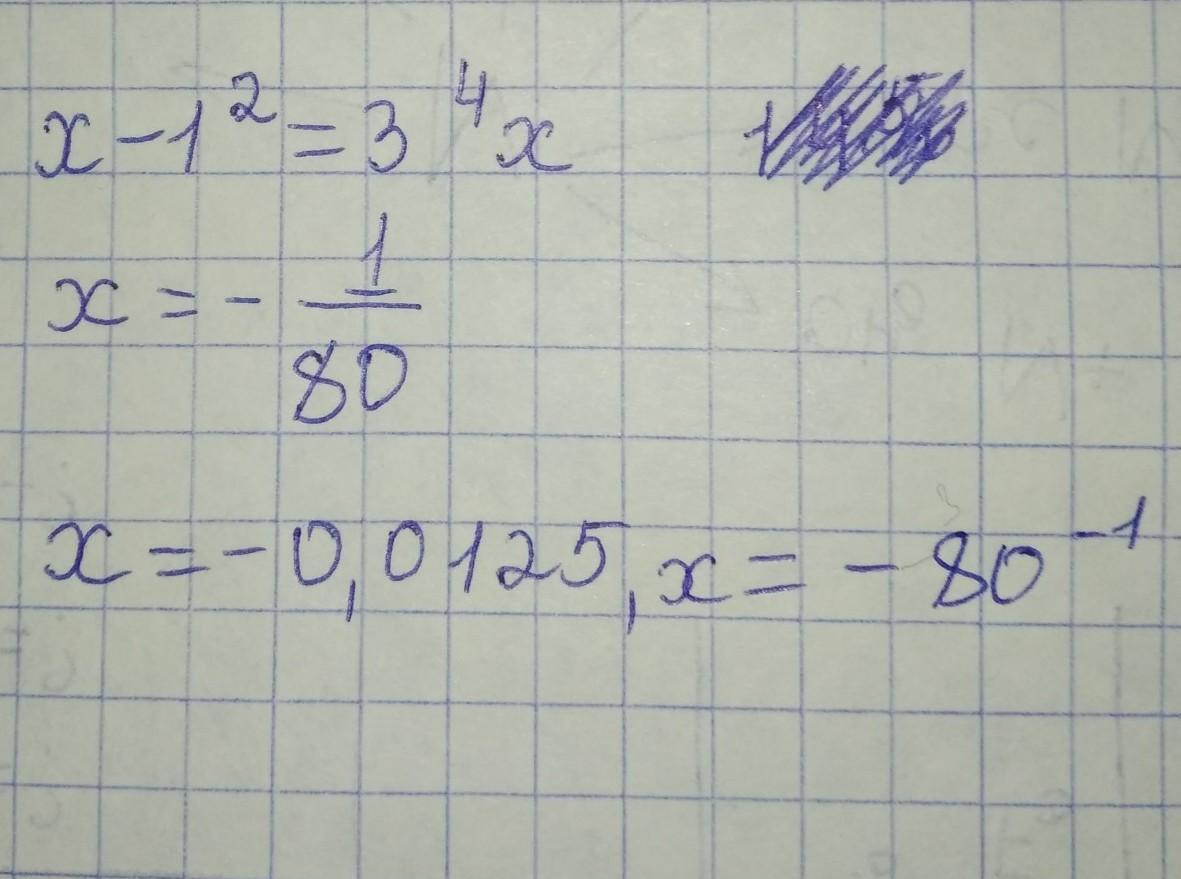 x-1²=3⁴x
x=-1/80
x=-0,0125, x=-80⁻¹